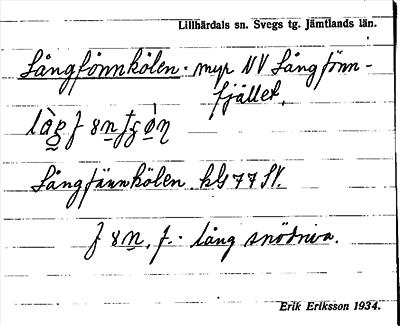 Lillhärdals sn. Svegs tg. Jämtlands län.
Långfönnkölen. myr NV Långfönn-
fjället.
Långfännkölen kbl 77 SV.
lång snödriva.
Erik Eriksson 1934.